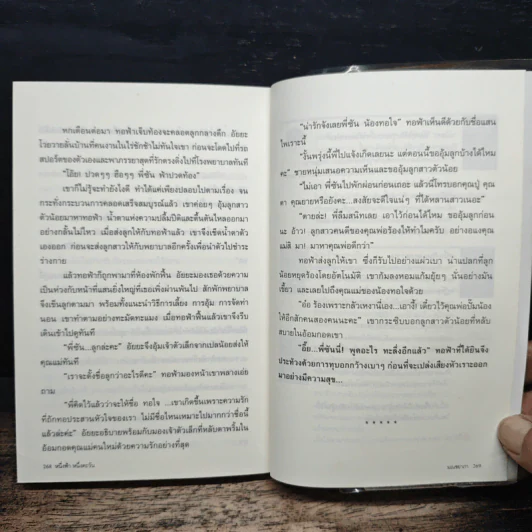 หกเดือนต่อมา ทอฟ้าเจ็บท้องจะคลอดลูกกลางดึก อัยยะ
โวยวายลั่นบ้านที่คนงานในไร่ชักช้าไม่ทันใจเขา ก่อนจะโดดไปที่รถ
สปอร์ตของตัวเองและพาภรรยาสุดที่รักตรงดิ่งไปที่โรงพยาบาลทันที
"โอ๊ย! ปวดๆๆ ฮือๆๆ พี่ซัน ฟ้าปวดท้อง"
เขาก็ไม่รู้จะทำยังไงดี ทำได้แค่เพียงปลอบไปตามเรื่อง จน
กระทั่งกระบวนการคลอดเสร็จสมบูรณ์แล้ว เขาค่อยๆ อุ้มลูกสาว
ตัวน้อยมาหาทอฟ้า น้ำตาแห่งความปลื้มปีติและตื้นตันไหลออกมา
อย่างกลั้นไม่ไหว เมื่อส่งลูกให้กับทอฟ้าแล้ว เขาจึงรีบเช็ดน้ำตาตัว
เองออก ก่อนจะส่งลูกสาวให้กับพยาบาลอีกครั้งเพื่อนำตัวไปชำระ
ร่างกาย
แล้วทอฟ้าก็ถูกพามาที่ห้องพักฟื้น อัยยะมองเธอด้วยความ
เป็นห่วงกับหน้าที่แสนยิ่งใหญ่ที่เธอเพิ่งผ่านพ้นไป สักพักพยาบาล
จึงเข็นลูกตามมา พร้อมทั้งแนะนำวิธีการเลี้ยง การอุ้ม การจัดท่า
นอน เขาทำตามอย่างทะมัดทะแมง เมื่อทอฟ้าฟื้นแล้วเขาจึงรีบ
เดินเข้าไปดูทันที
"พี่ซัน...ลูกล่ะคะ" อัยยะจึงอุ้มเจ้าตัวเล็กจากเปลน้อยส่งให้
คุณแม่ทันที
"เราจะตั้งชื่อลูกว่าอะไรดีคะ" ทอฟ้ามองหน้าเขาพลางเอ่ย
ถาม
"พี่คิดไว้แล้วว่าจะให้ชื่อ ทอใจ ...เขาเกิดขึ้นเพราะความรัก
ที่ถักทอประสานหัวใจของเรา ไม่มีชื่อไหนเหมาะไปมากกว่าชื่อนี้
แล้วล่ะค่ะ" อัยยะอธิบายพร้อมกับมองเจ้าตัวเล็กที่หลับตาพริ้มใน
อ้อมกอดคุณแม่คนใหม่ด้วยความรักอย่างที่สุด
268 หนึ่งฟ้า หนึ่งตะวัน
"น่ารักจังเลยพี่ซัน น้องทอใจ" ทอฟ้าเห็นดีด้วยกับชื่อแสน
ไพเราะนี้
"งั้นพรุ่งนี้พี่ไปแจ้งเกิดเลยนะ แต่ตอนนี้ขออุ้มลูกบ้างได้ไหม
คะ" ชายหนุ่มเสนอความคิดและขออุ้มลูกสาวตัวน้อย
"ไม่เอา พี่ซันไปพักผ่อนก่อนเถอะ แล้วนี่โทรบอกคุณปู่ คุณ
ตา คุณยายหรือยังคะ...ลงสัยจะดีใจแน่ๆ ที่ได้หลานสาวเนอะ"
"ตายล่ะ! พี่ลืมสนิทเลย เอาไว้ก่อนได้ไหม ขออุ้มลูกก่อน
นะ อ้าว! ลูกสาวคนดีของคุณพ่อร้องไห้ทำไมครับ อย่างอแงคุณ
แม่สิ มา! มาหาคุณพ่อดีกว่า"
ทอฟ้าส่งลูกให้เขา ซึ่งก็รับไปอย่างแผ่วเบา น่าแปลกที่ลูก
น้อยหยุดร้องโดยอัตโนมัติ เขาก้มลงหอมแก้มยุ้ยๆ นั่นอย่างมัน
เขี้ยว และเลยไปถึงคุณแม่ของน้องทอใจด้วย
"อ๋อ ร้องเพราะกลัวเหงานี่เอง...เอางี้! เดี๋ยวไว้คุณพ่อปั๊มน้อง
ให้อีกสักคนสองคนนะคะ" เขากระซิบบอกลูกสาวตัวน้อยที่หลับ
สบายในอ้อมกอดเขา
"อื๊อ...พี่ซันนี่! พูดอะไร ทะลึ่งอีกแล้ว" ทอฟ้าที่ได้ยินจึง
ประท้วงด้วยการทุบอกกว้างเบาๆ ก่อนที่จะเปล่งเสียงหัวเราะออก
มาอย่างมีความสุข...
* * * * *
269